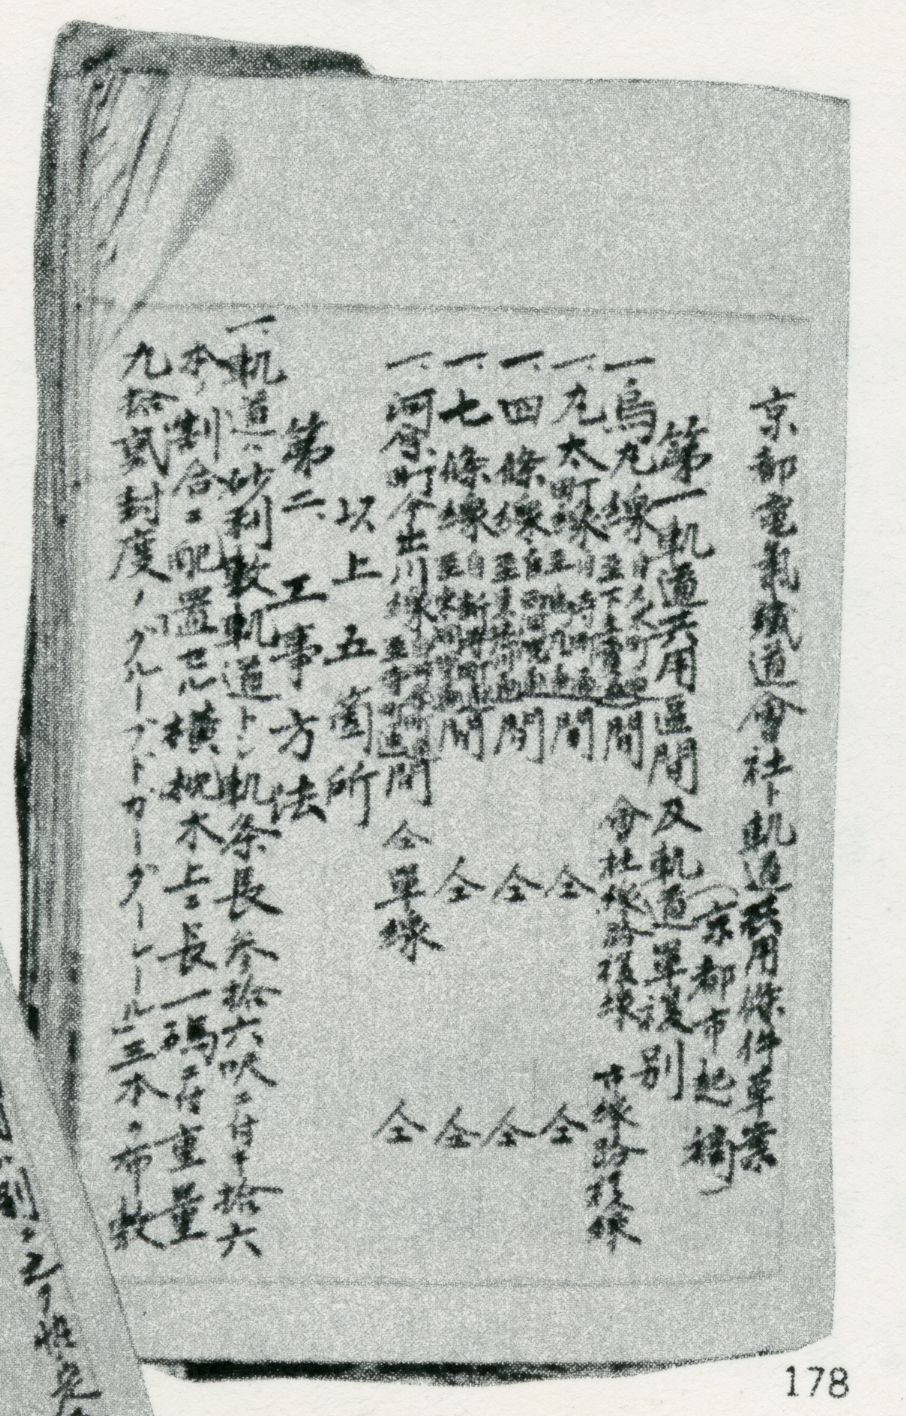 京都電氣鐵道會社ト軌道共用條件草案
(京都市起稿)
第一 軌道共用區間及軌道單複別
一、烏丸線 間 會社線路複線 市線路複線
一、丸太町線 間 仝 仝
一、四條線 間 仝 仝
一、七條線 間 仝 仝
一、河原町今出川線 間 仝單線 仝
以上五箇所
第二、工事方法
一、軌道ハ砂利敷軌道トシ軌条長參拾六呎ニ付キ拾六
本ノ割合ニ配置セル横枕木上ニ長一碼ニ付重量
九拾貳封度ノ「グルーブドガーダーレール」三本ヲ布敷
178